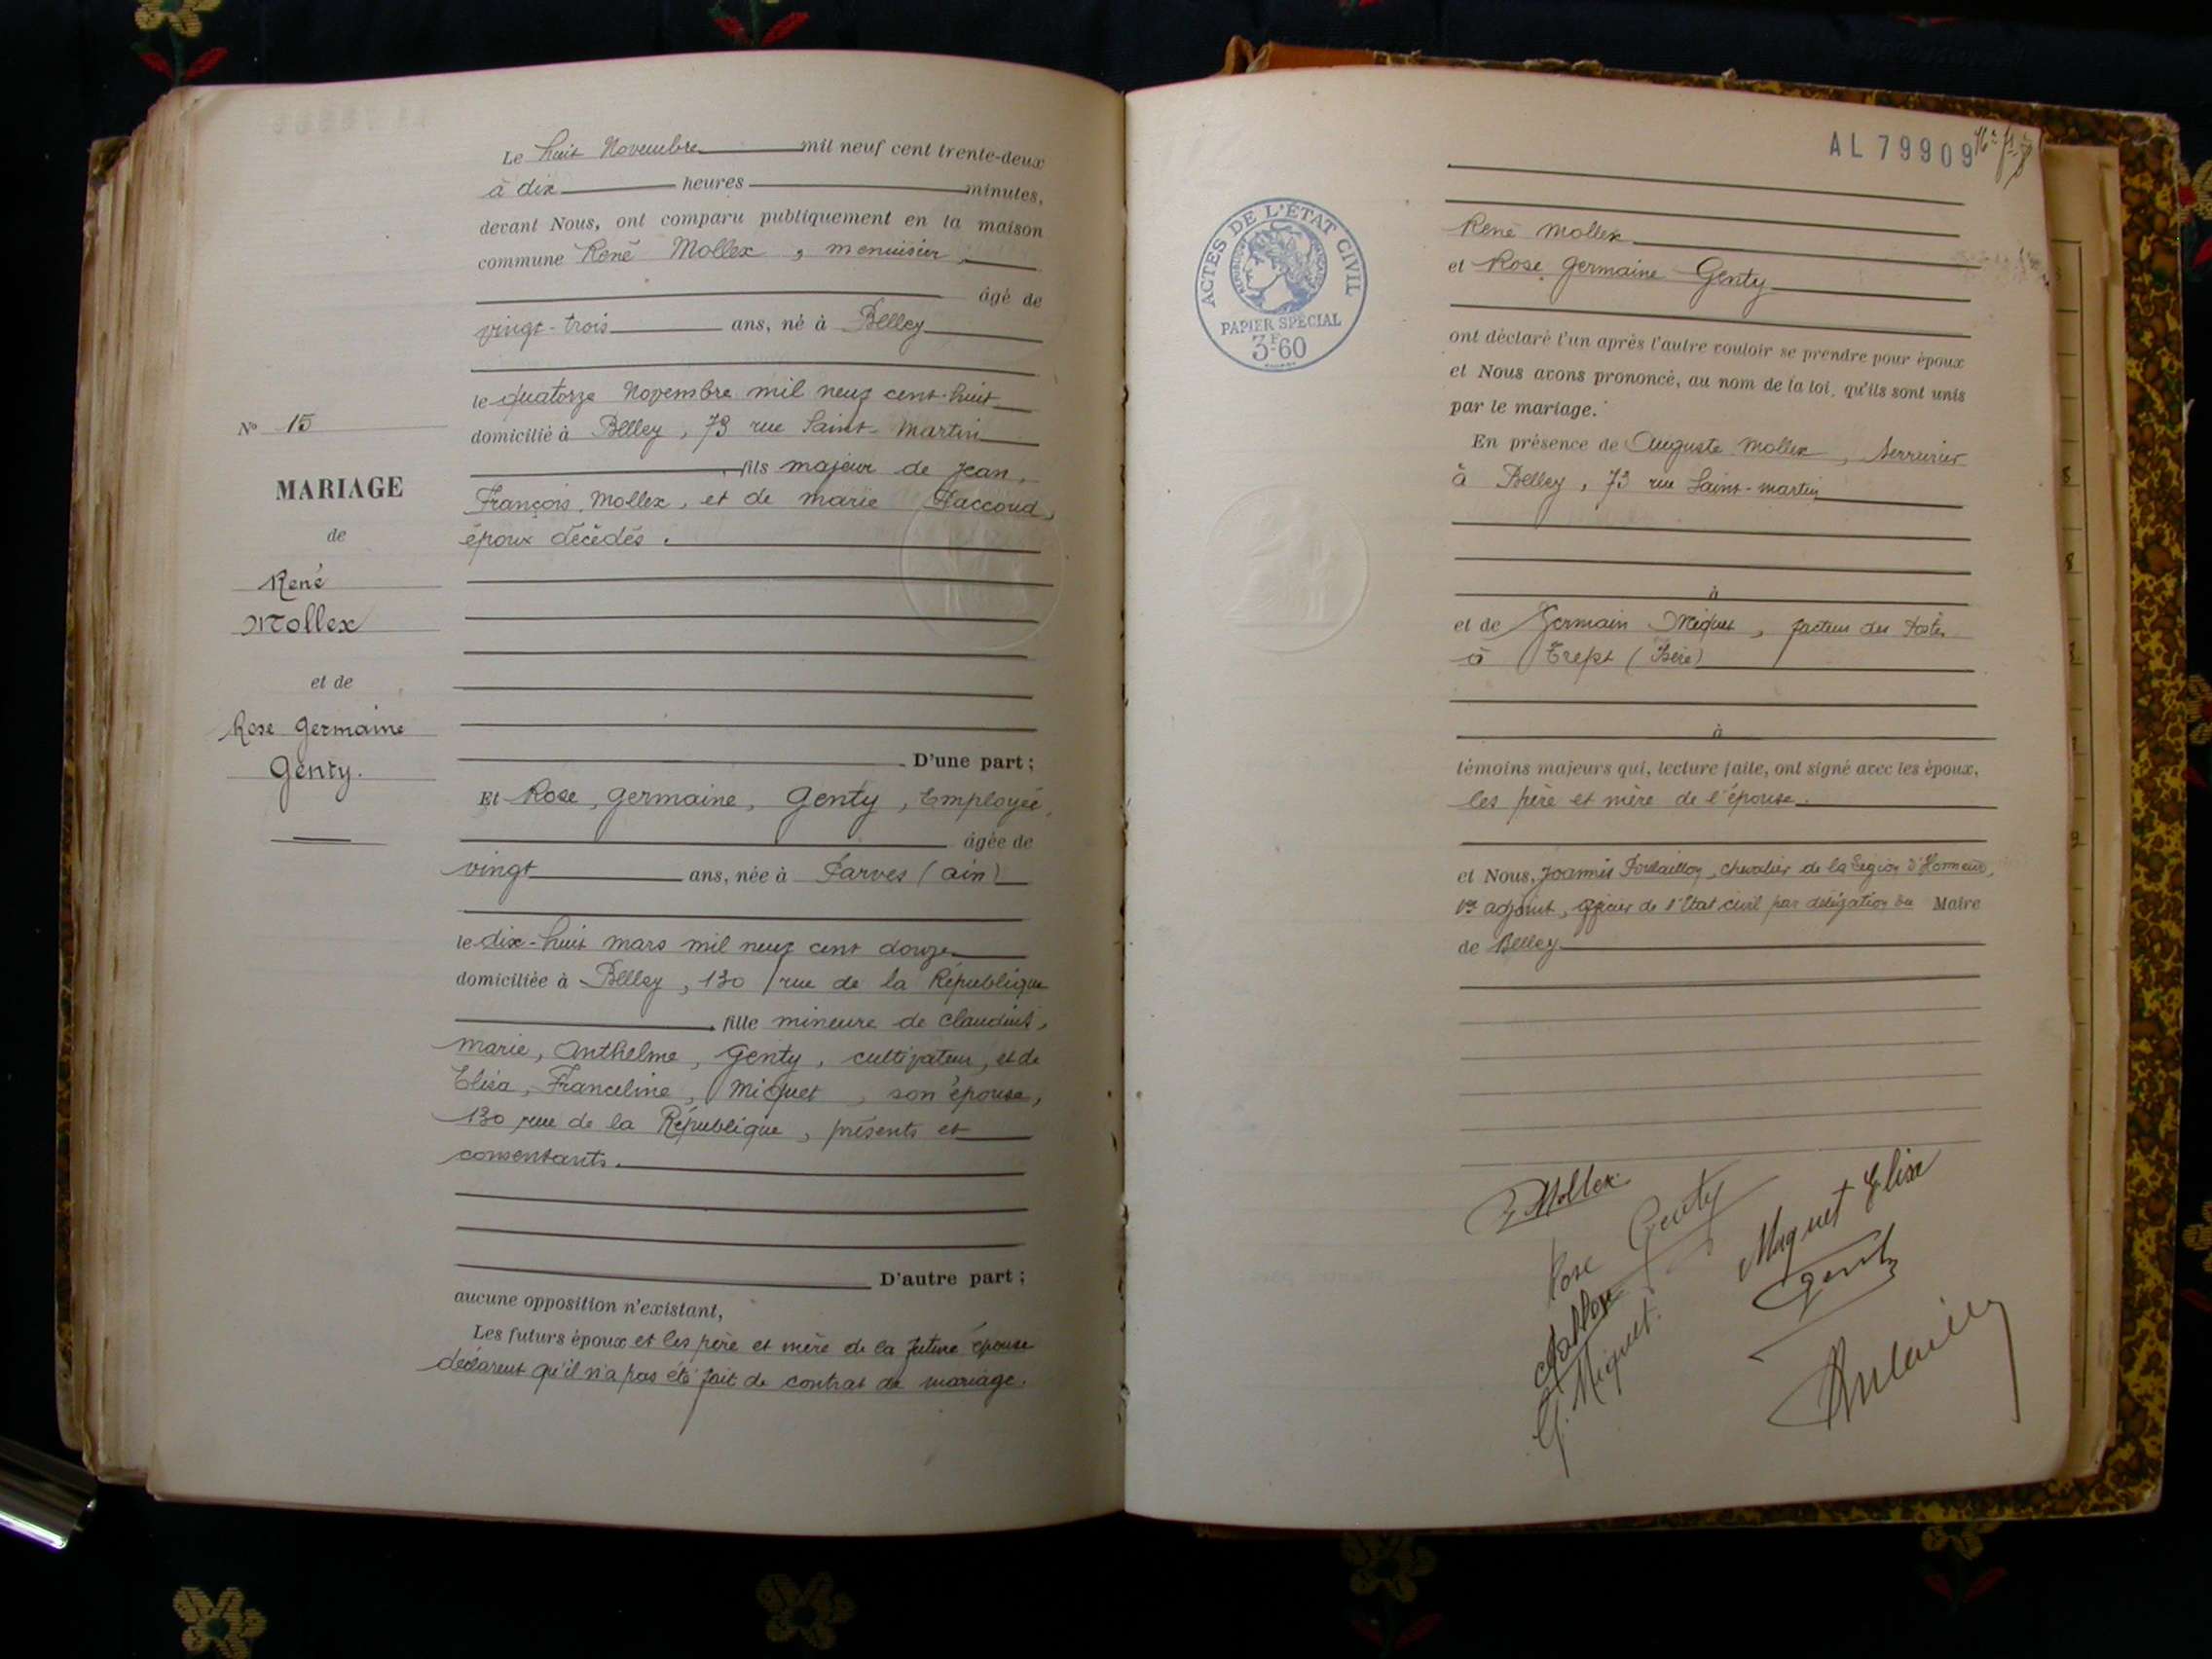 Le huit Novembre mil neuf cent trente-deux
à dix heures minutes,
devant Nous, ont comparu publiquement en la maison
commune René Mollex, menuisier,
âgé de
vingt-trois ans, né à Belley
le quatorze Novembre mil neuf cent-huit
domicilié à Belley, 73 rue Saint-Martin
fils majeur de Jean,
François, Mollex, et de marie Raccoud,
époux décédés.
D'une part;
Et Rose, germaine, Genty, Employée,
âgée de
vingt ans, née à Parves (ain)
le dix-huit mars mil neuf cent douze
domiciliée à Belley, 130 rue de la République
fille mineure de Claudius,
marie, Anthelme, Genty, cultivateur, et de
Elisa, Franceline, Miguet, son épouse,
130 rue de la République, présents et
consentants.
D'autre part;
aucune opposition n'existant,
Les futurs époux et les père et mère de la future épouse
déclarent qu'il n'a pas été fait de contrat de mariage.
No 15
MARIAGE
de
René
Mollex
et de
Rose Germaine
Genty.
AL 79909
ACTES DE L'ÉTAT CIVIL
RÉPUBLIQUE FRANÇAISE
PAPIER SPÉCIAL
3F60
René Mollex
et Rose, Germaine Genty
ont déclaré l'un après l'autre vouloir se prendre pour époux
et Nous avons prononcé, au nom de la loi, qu'ils sont unis
par le mariage.
En présence de Auguste Mollex, Serrurier
à Belley, 73 rue Saint-Martin
à
et de Germain Miguet, facteur des Postes
à Trept (Isère)
à
témoins majeurs qui, lecture faite, ont signé avec les époux,
les père et mère de l'épouse.
et Nous, Joannès chevalier de la Légion d'Honneur,
1er adjoint, officier de l'Etat civil par délégation du Maire
de Belley
Mollex
Rose Genty
Miguet Elisa
Mollex
Genty
G. Miguet.